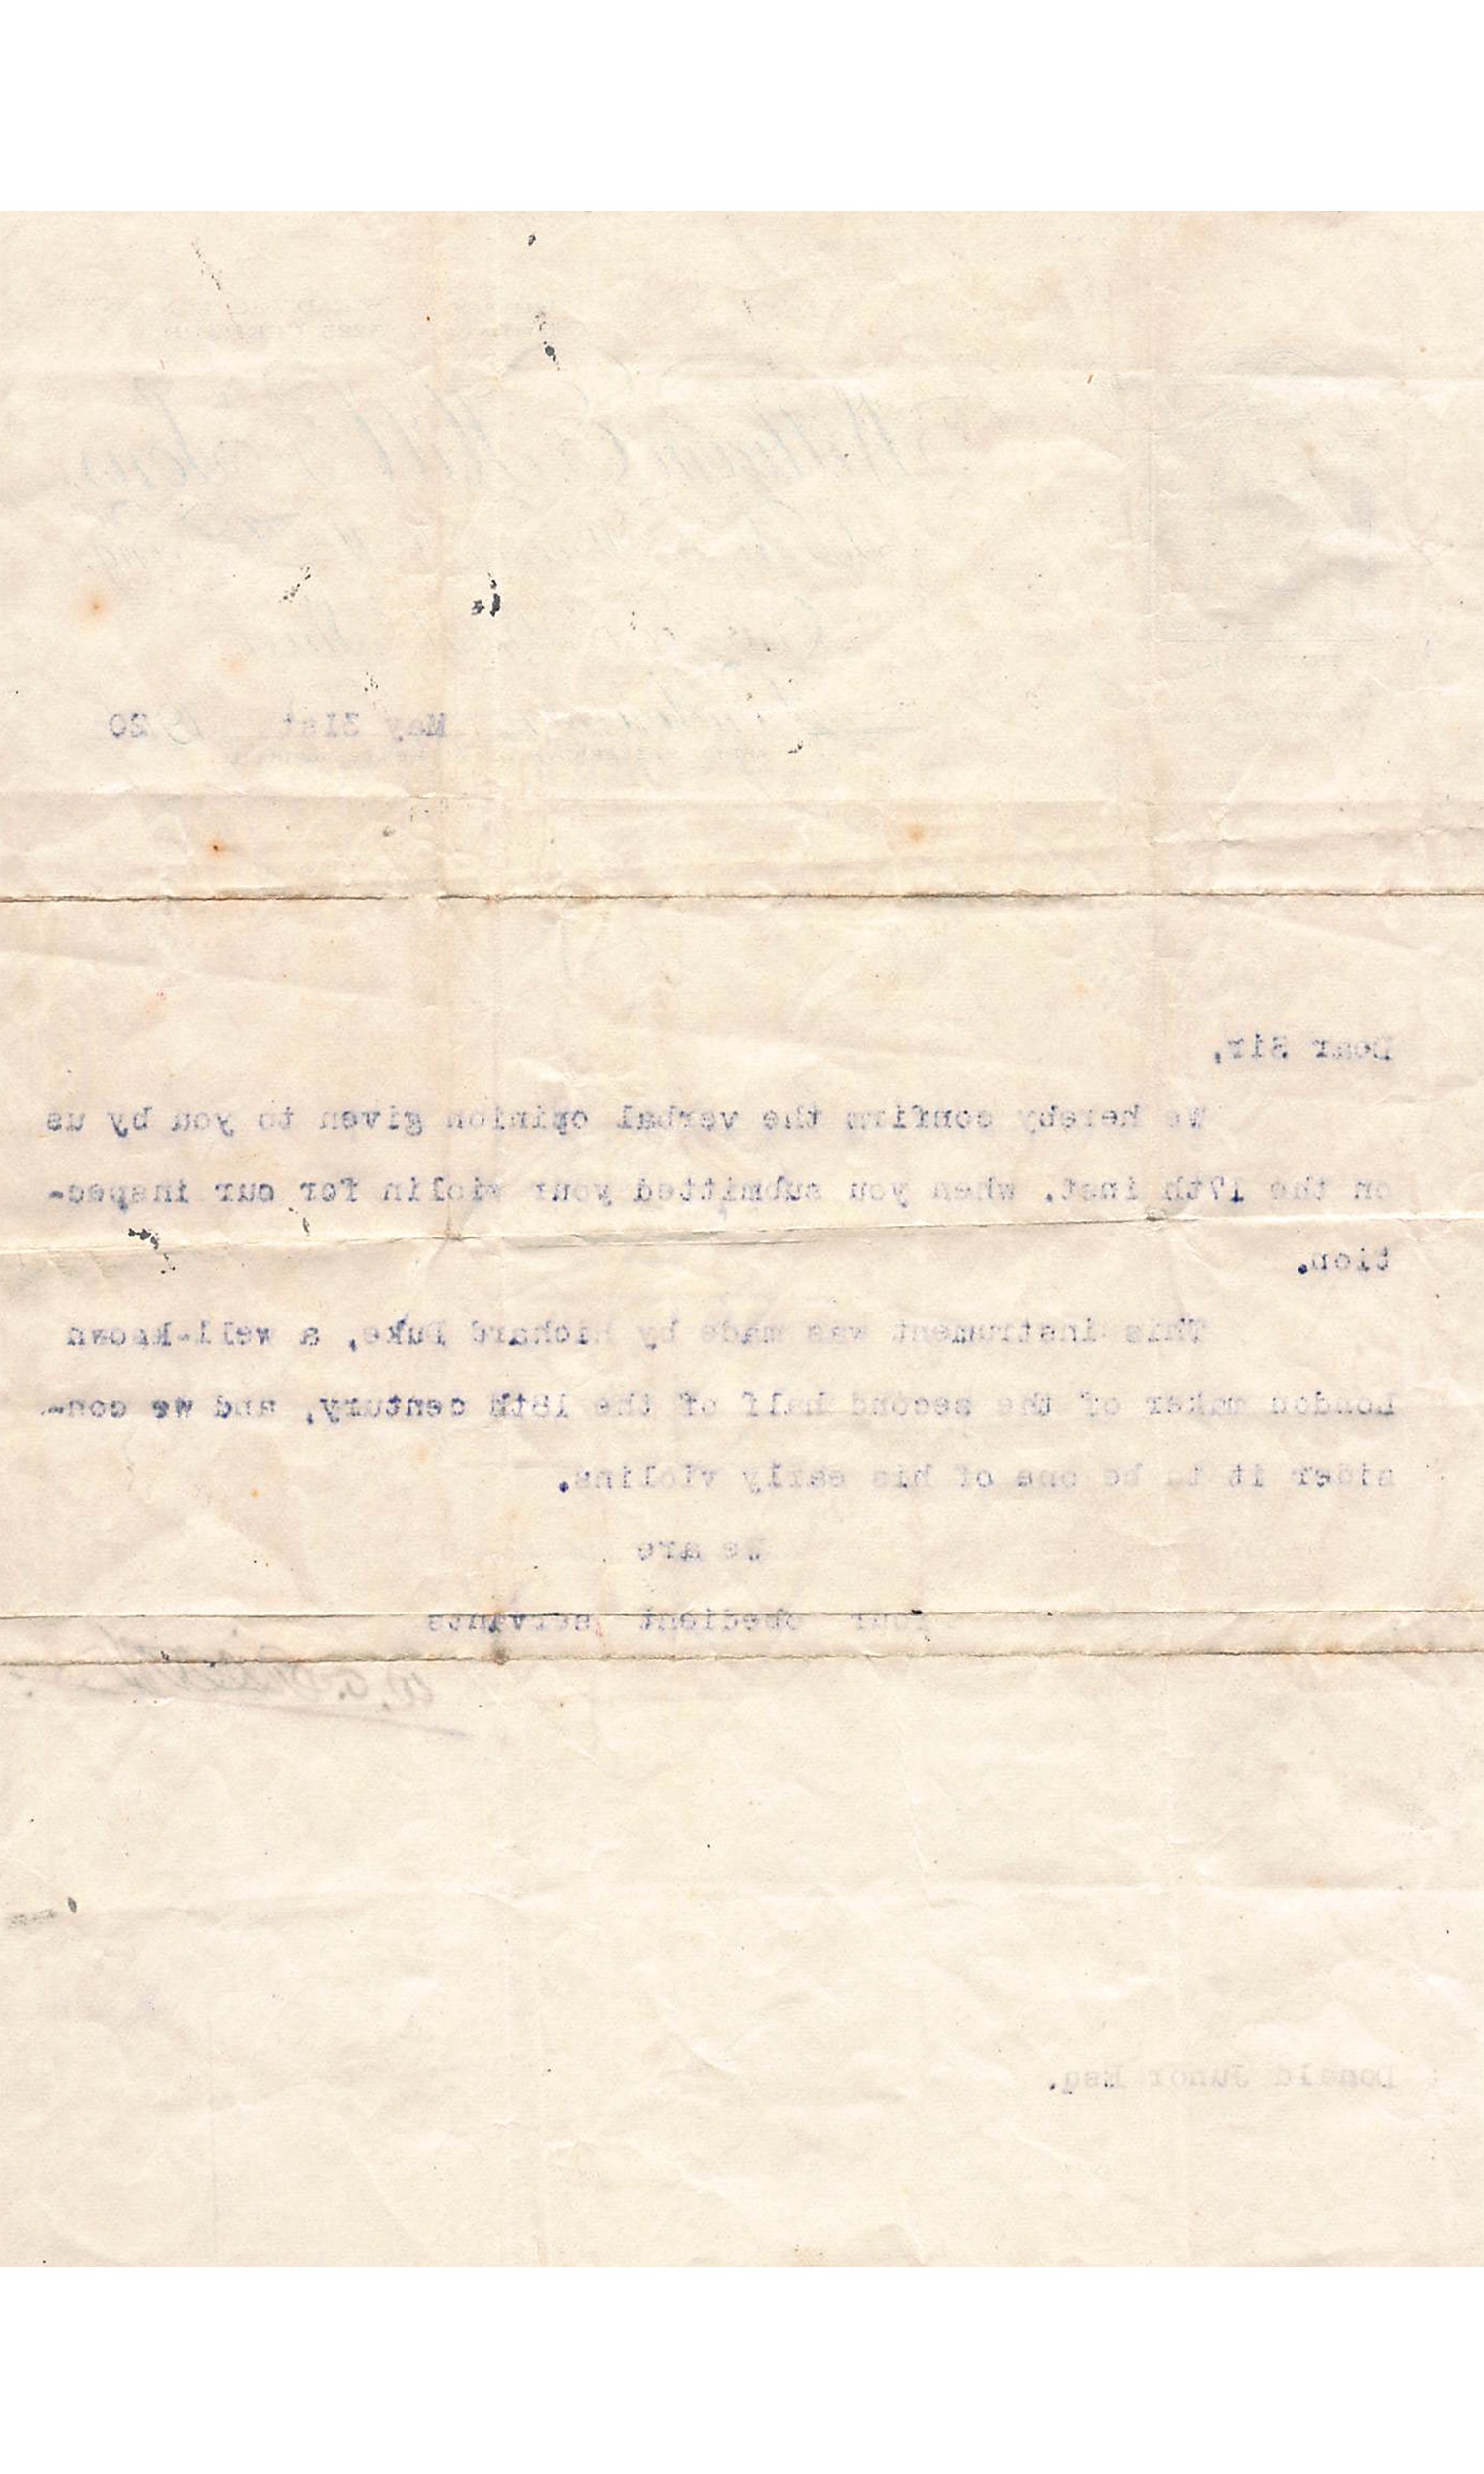 William E. Hill & Sons
May 31st 1920
Dear Sir,
We hereby confirm the verbal opinion given to you by us
on the 17th inst. when you submitted your violin for our inspec-
tion.
This instrument was made by Richard Duke, a well-known
London maker of the second half of the 18th century, and we con-
sider it to be one of his early violins.
We are
Your obedient servants
Donald Junor Esq.